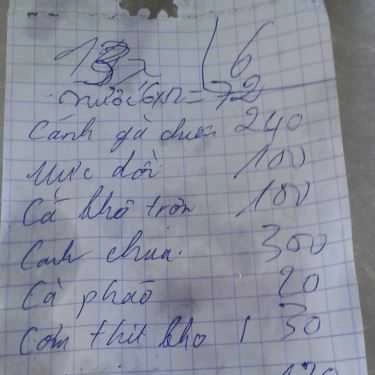 6
nước 6x12 = 72
Cánh gà chiên 240
Mực dồi 100
Cá khô trộn 100
Canh chua. 300
Cà pháo 20
Cơm thịt kho 1 30
120